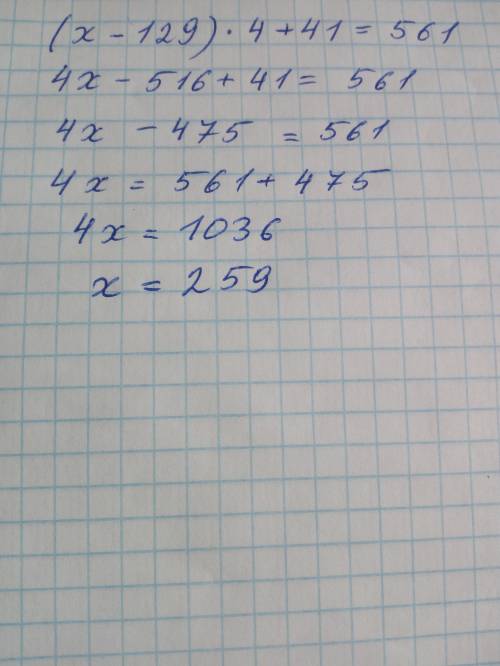 (x - 129) · 4 + 41 = 561
4x - 516 + 41 = 561
4x - 475 = 561
4x = 561 + 475
4x = 1036
x = 259